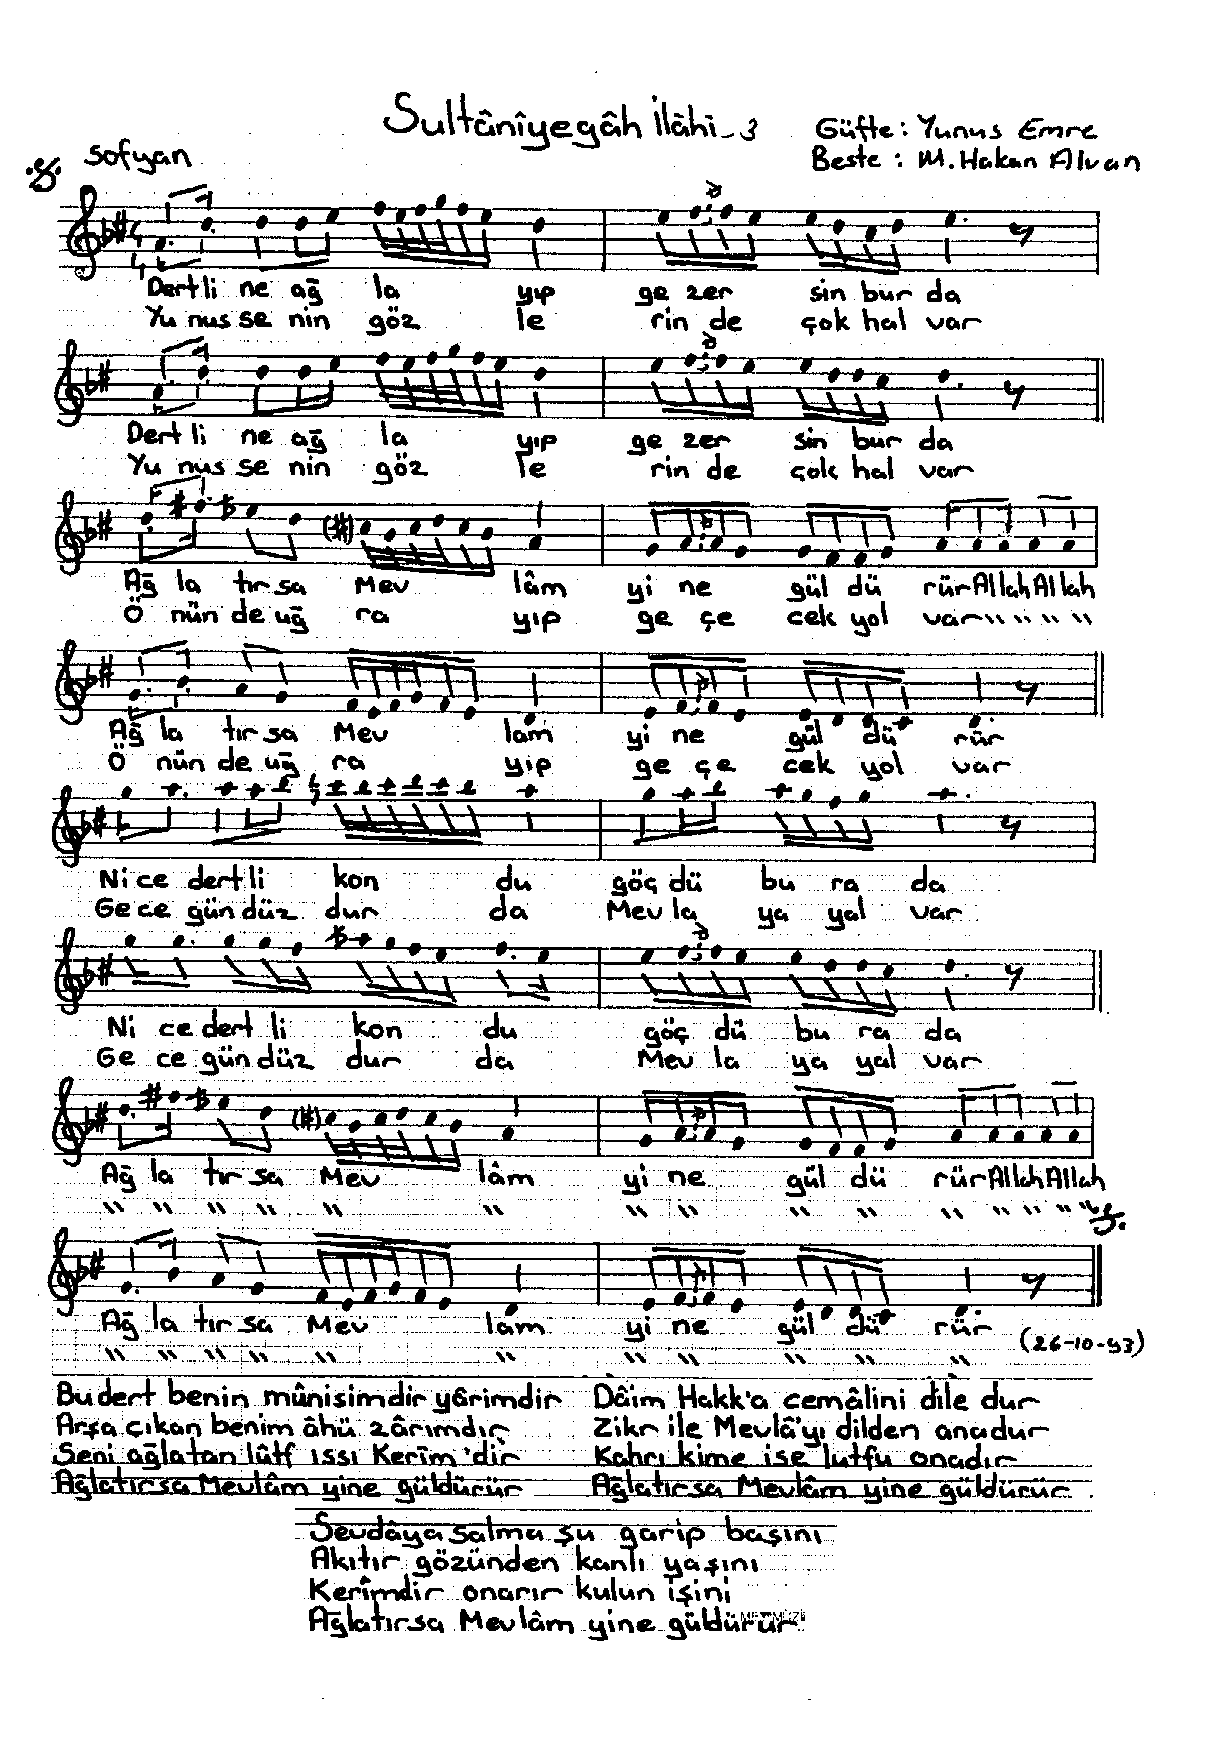 Sultânîyegâh İlâhi-3
Güfte: Yunus Emre
Sofyan
Beste: M. Hakan Alvan
Dertli ne ağ la yıp ge zer sin bur da
Yu nus se nin göz le rin de çok hal var
Dert li ne ağ la yıp ge zer sin bur da
Yu nus se nin göz le rin de çok hal var
Ağ la tır sa Mev lâm yi ne gül dü rür Allah Allah
Ö nün de uğ ra yıp ge çe cek yol var " " " "
Ağ la tır sa Mev lam yi ne gül dü rür
Ö nün de uğ ra yıp ge çe cek yol var
Ni ce dert li kon du göç dü bu ra da
Ge ce gün düz dur da Mev la ya yal var
Ni ce dert li kon du göç dü bu ra da
Ge ce gün düz dur da Mev la ya yal var
Ağ la tır sa Mev lâm yi ne gül dü rür Allah Allah
" " " " " " " " " " " " " " "
Ağ la tır sa Mev lam yi ne gül dü rür
" " " " " " " " " " "
(26-10-93)
Bu dert benin mûnisimdir yârimdir
Arşa çıkan benim âhü zârımdır
Seni ağlatan lûtf ıssı Kerîm'dir
Ağlatırsa Mevlâm yine güldürür
Dâim Hakk'a cemâlini dile dur
Zikr ile Mevlâ'yı dilden anadur
Kahrı kime ise lutfu onadır
Ağlatırsa Mevlâm yine güldürür.
Sevdâya salma şu garip başını
Akıtır gözünden kanlı yaşını
Kerîmdir onarır kulun işini
Ağlatırsa Mevlâm yine güldürür